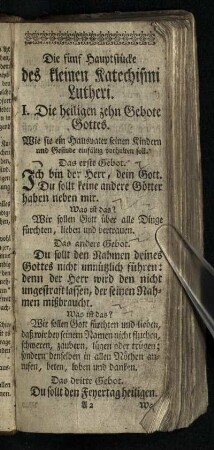 Die fünf Hauptstücke
des kleinen Katechismi
Lutheri.
I. Die heiligen zehn Gebote
Gottes.
Wie sie ein Hausvater seinen Kindern
und Gesinde einfältig vorhalten soll.
Das erste Gebot.
Ich bin der Herr, dein Gott.
Du sollt keine andere Götter
haben neben mir.
Was ist das?
Wir sollen Gott über alle Dinge
fürchten, lieben und vertrauen.
Das andere Gebot.
Du sollt den Nahmen deines
Gottes nicht unnützlich führen:
denn der Herr wird den nicht
ungestraft lassen, der seinen Nah-
men mißbraucht.
Was ist das?
Wir sollen Gott fürchten und lieben,
daß wir bey seinem Namen nicht fluchen,
schweren, zaubern, lügen oder trügen;
sondern denselben in allen Nöthen an-
rufen, beten, loben und danken.
Das dritte Gebot.
Du sollt den Feyertag heiligen.
A 2